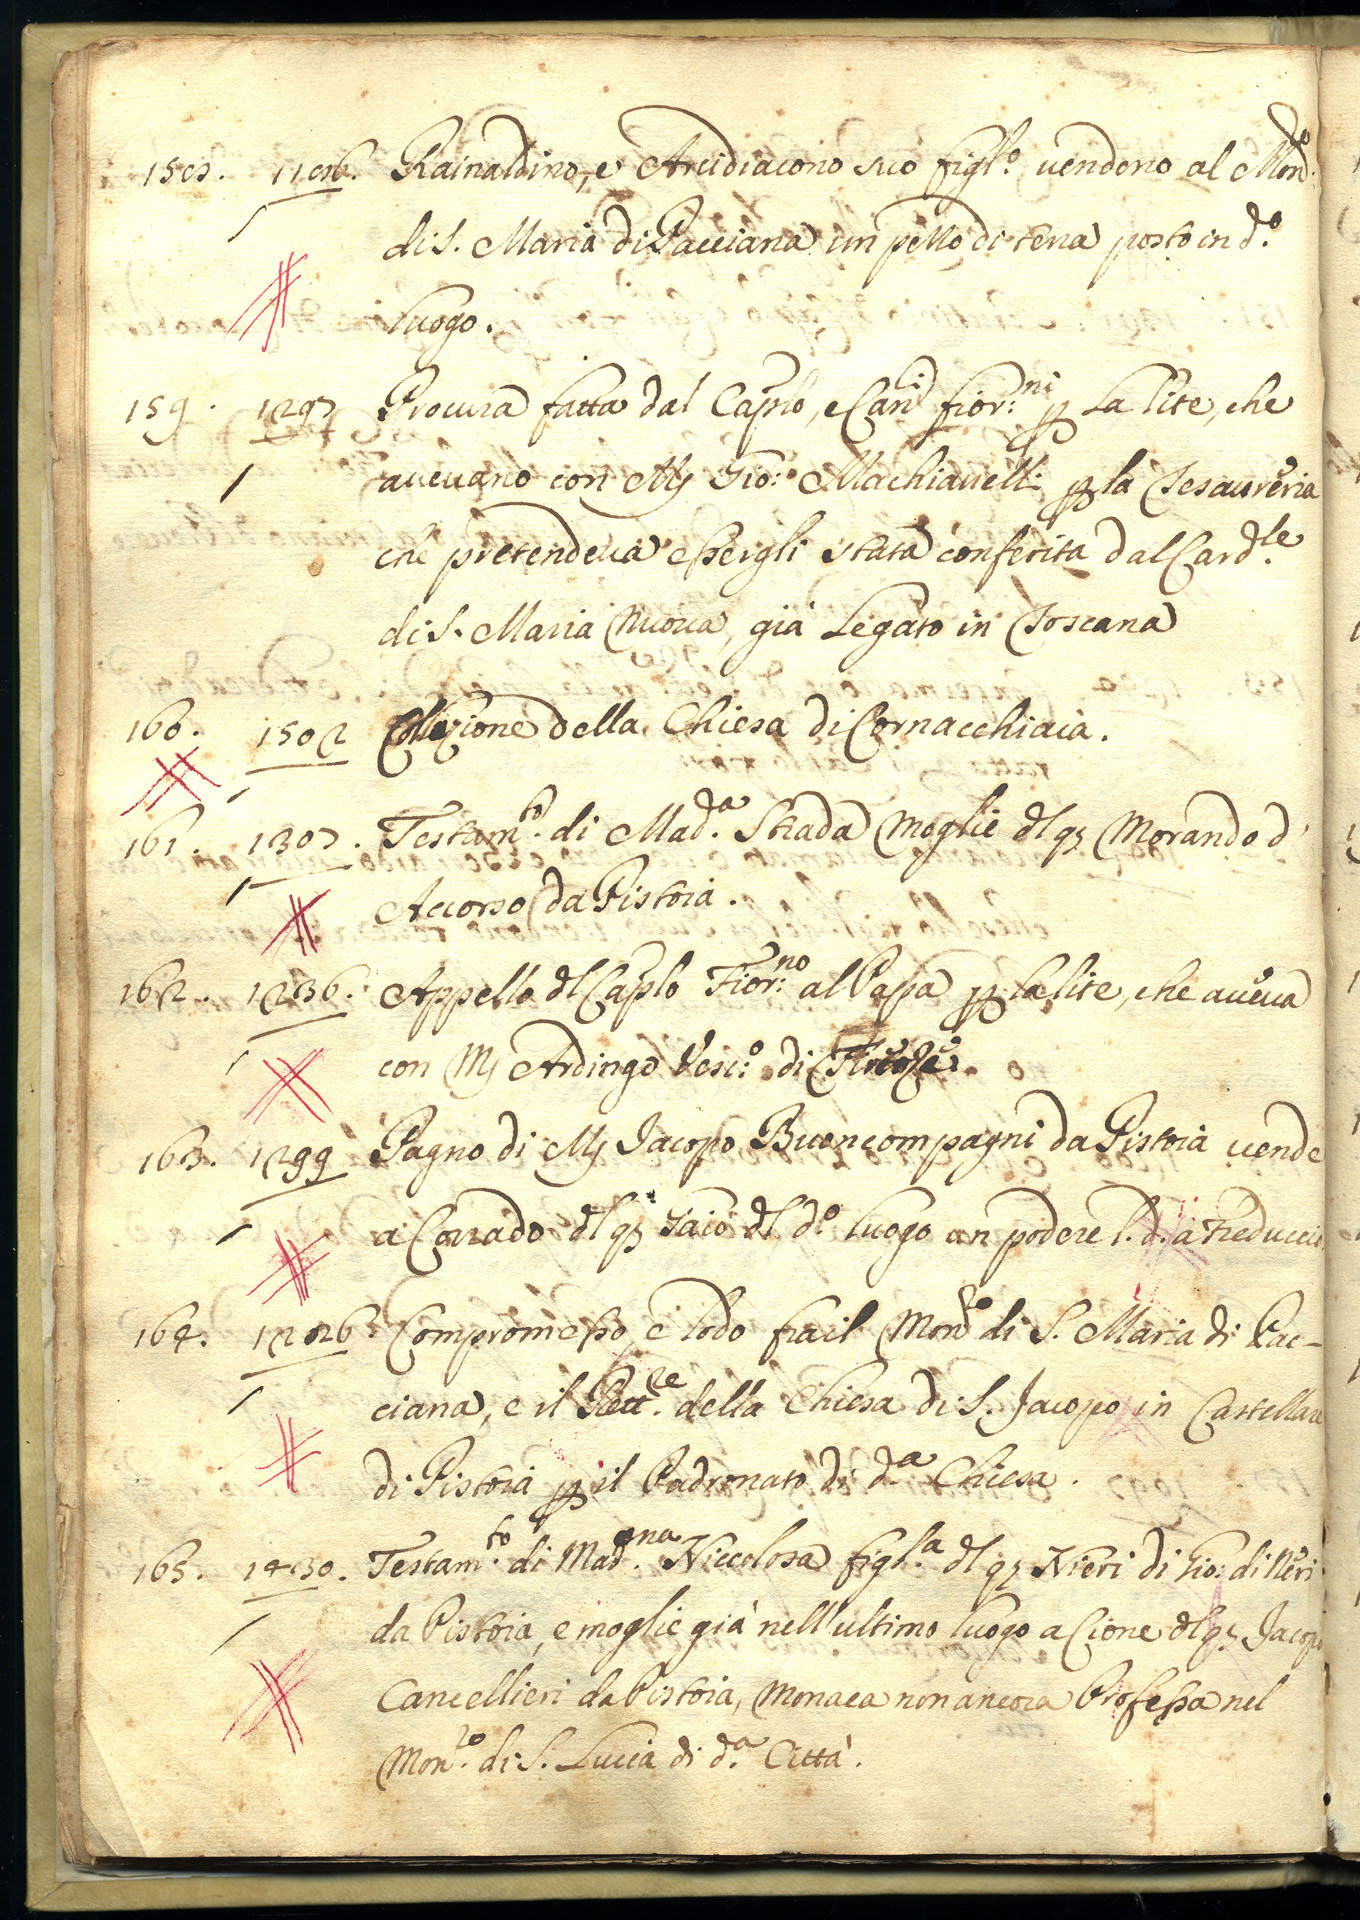 158. 1196. Rainaldino, e Arcidiacono suo figl.o vendono al Mon.ro
di S. Maria di Pacciana un pezzo di terra posto in d.o
luogo.
159. 1297 Procura fatta dal Caplo, e Can.i fior.ni p la lite, che
avevano con M Gio: Machiavelli p la Tesaureria
che pretendeva essergli stata conferita dal Card.le
di S. Maria Nuova, già Legato in Toscana
160. 1502 Collazione della Chiesa di Cornacchiaia.
161. 1307. Testam.to di Mad.a Strada moglie dl q Morando d'
Accorso da Pistoia.
162. 1236. Appello dl Caplo Fior.no al Papa p la lite, che aveva
con M Ardingo Vesc.o di Firenze.
163. 1299 Pagno di M Jacopo Buoncompagni da Pistoia vende
a Corrado dl q Gaio dl d.o luogo un podere l. d. a Freducci
164. 1226 Compromesso, e lodo fra il Mon.ro di S. Maria di Pac-
ciana, e il Rett.re della Chiesa di S. Jacopo in Castellare
di Pistoia p il Padronato di d.a Chiesa.
165. 1430. Testam.to di Mad.na Niccolosa figl.a dl q Nieri di Gio: di Neri
da Pistoia, e moglie già nell'ultimo luogo a Cione dl q Jacopo
Cancellieri da Pistoia, Monaca non ancora Professa nel
Mon.ro di S. Lucia di d.a Città.